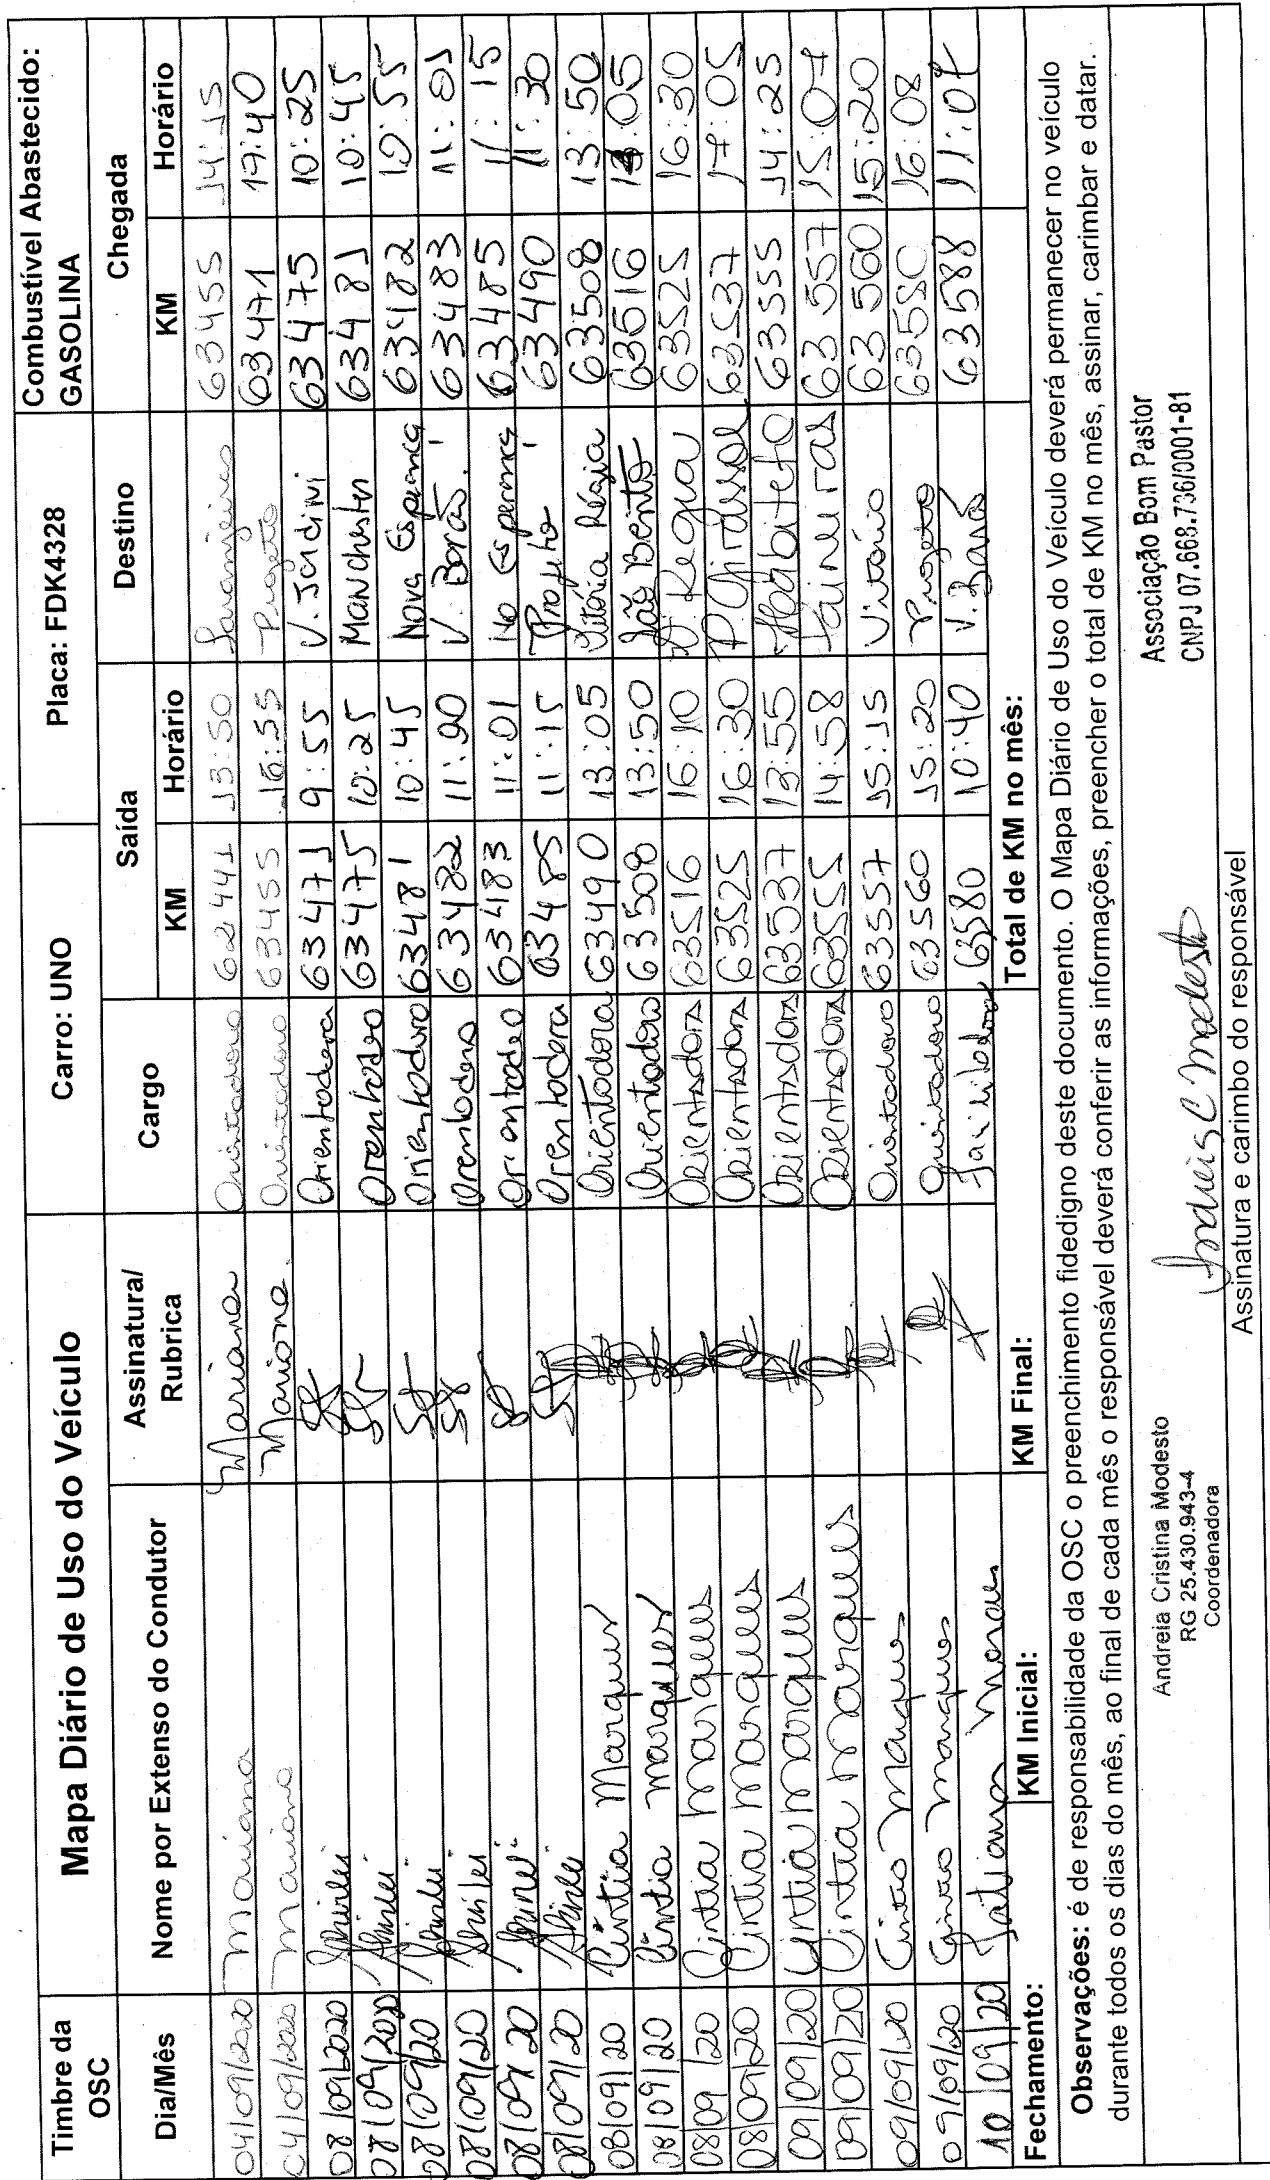 Timbre da OSC Mapa Diário de Uso do Veículo Carro: UNO Placa: FDK4328 Combustível Abastecido: GASOLINA
Dia/Mês Nome por Extenso do Condutor Assinatura/Rubrica Cargo Saída Destino Chegada
KM Horário KM Horário
04/09/2020 Mariana Mariana Orientadora 62441 13:50 Laranjeiras 63455 14:15
04/09/2020 Mariana Mariana. Orientadora 63455 16:55 Projeto 63471 17:40
08/09/2020 Shirlei Orientadora 63471 9:55 V. Jardini 63475 10:25
08/09/2020 Shirlei Orientadora 63475 10:25 Manchester 63481 10:45
08/09/20 Shirlei Orientadora 63481 10:45 Nova Esperança 63482 10:55
08/09/20 Shirlei Orientadora 63482 11:00 V. Barão. 63483 11:01
08/09/20 Shirlei Orientadora 63483 11:01 No Esperança 63485 11:15
08/09/20 Shirlei Orientadora 63485 11:15 Projeto 63490 11:30
08/09/20 Cintia Marques Orientadora 63490 13:05 Vitória Régia 63508 13:50
08/09/20 Cintia Marques Orientadora 63508 13:50 São Bento 63516 14:05
08/09/20 Cintia Marques Orientadora 63516 16:10 V. Regia 63525 16:30
08/09/20 Cintia Marques Orientadora 63525 16:30 P. Girassol 63537 17:05
09/09/20 Cintia Marques Orientadora 63537 13:55 Habiteto 63555 14:25
09/09/20 Cintia Marques Orientadora 63555 14:58 Paineiras 63557 15:07
09/09/20 Cintia Marques Orientadora 63557 15:15 Vitório 63560 15:20
09/09/20 Cintia Marques Orientadora 63560 15:20 Projeto 63580 16:08
10/09/20 Tatiana Moraes 63580 10:40 V. Barão 63588 11:07
Fechamento: KM Inicial: KM Final: Total de KM no mês:
Observações: é de responsabilidade da OSC o preenchimento fidedigno deste documento. O Mapa Diário de Uso do Veículo deverá permanecer no veículo
durante todos os dias do mês, ao final de cada mês o responsável deverá conferir as informações, preencher o total de KM no mês, assinar, carimbar e datar.
Andreia Cristina Modesto
RG 25.430.943-4
Coordenadora
Andreia C Modesto
Associação Bom Pastor
CNPJ 07.668.736/0001-81
Assinatura e carimbo do responsável